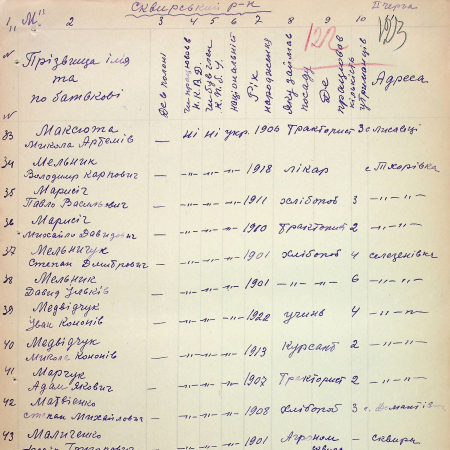 Сквирський р-н
II черга
1 „М" 2 3 4 5 6 7 8 9 10
122
Прізвище імя та по батькові
Де в полоні
національність
Рік народження
Яку займав посаду
Де працював
кількість утриманців
Адреса
33 Максюта Микола Артемів — ні ні укр. 1906 Тракторист 3 с Лисавці
34 Мельник Володимир Карпович — -„- -„- -„- 1918 лікар с Тхорівка
35 Марисіч Павло Васильович — -„- -„- -„- 1911 хлібороб 3 -„- -„-
36 Марисіч Михайло Давидович — -„- -„- -„- 1910 тракторист 2 -„- -„-
37 Мельничук Степан Дмитрович — -„- -„- -„- 1901 хлібороб 4 селезенівка
38 Мельник Давид Ільків — -„- -„- -„- 1901 -„- -„- 6 -„- -„-
39 Медвідчук Іван Кононів — -„- -„- -„- 1922 учинь 4 -„- -„-
40 Медвідчук Микола Кононів — -„- -„- -„- 1913 Курсант 2 -„- -„-
41 Марчук Адам Якович — -„- -„- -„- 1907 Тракторист 2 -„- -„-
42 Матвієнко Степан Михайлович — -„- -„- -„- 1908 Хлібороб 3 с.
43 Маличенко — -„- -„- -„- 1901 Агроном — сквира